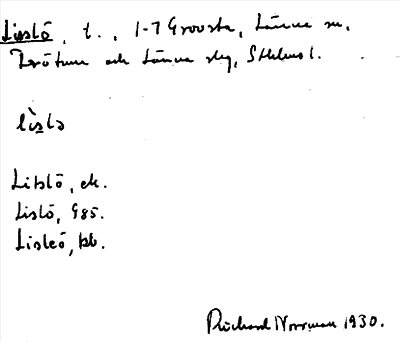 Listö, t., 1-7 Grovsta, Länna sn,
Frötuna och Länna skg, Sthlms l.
lìstə
Listö, ek.
Listö, G85.
Listeö, bb.
Richard Norrman 1930.